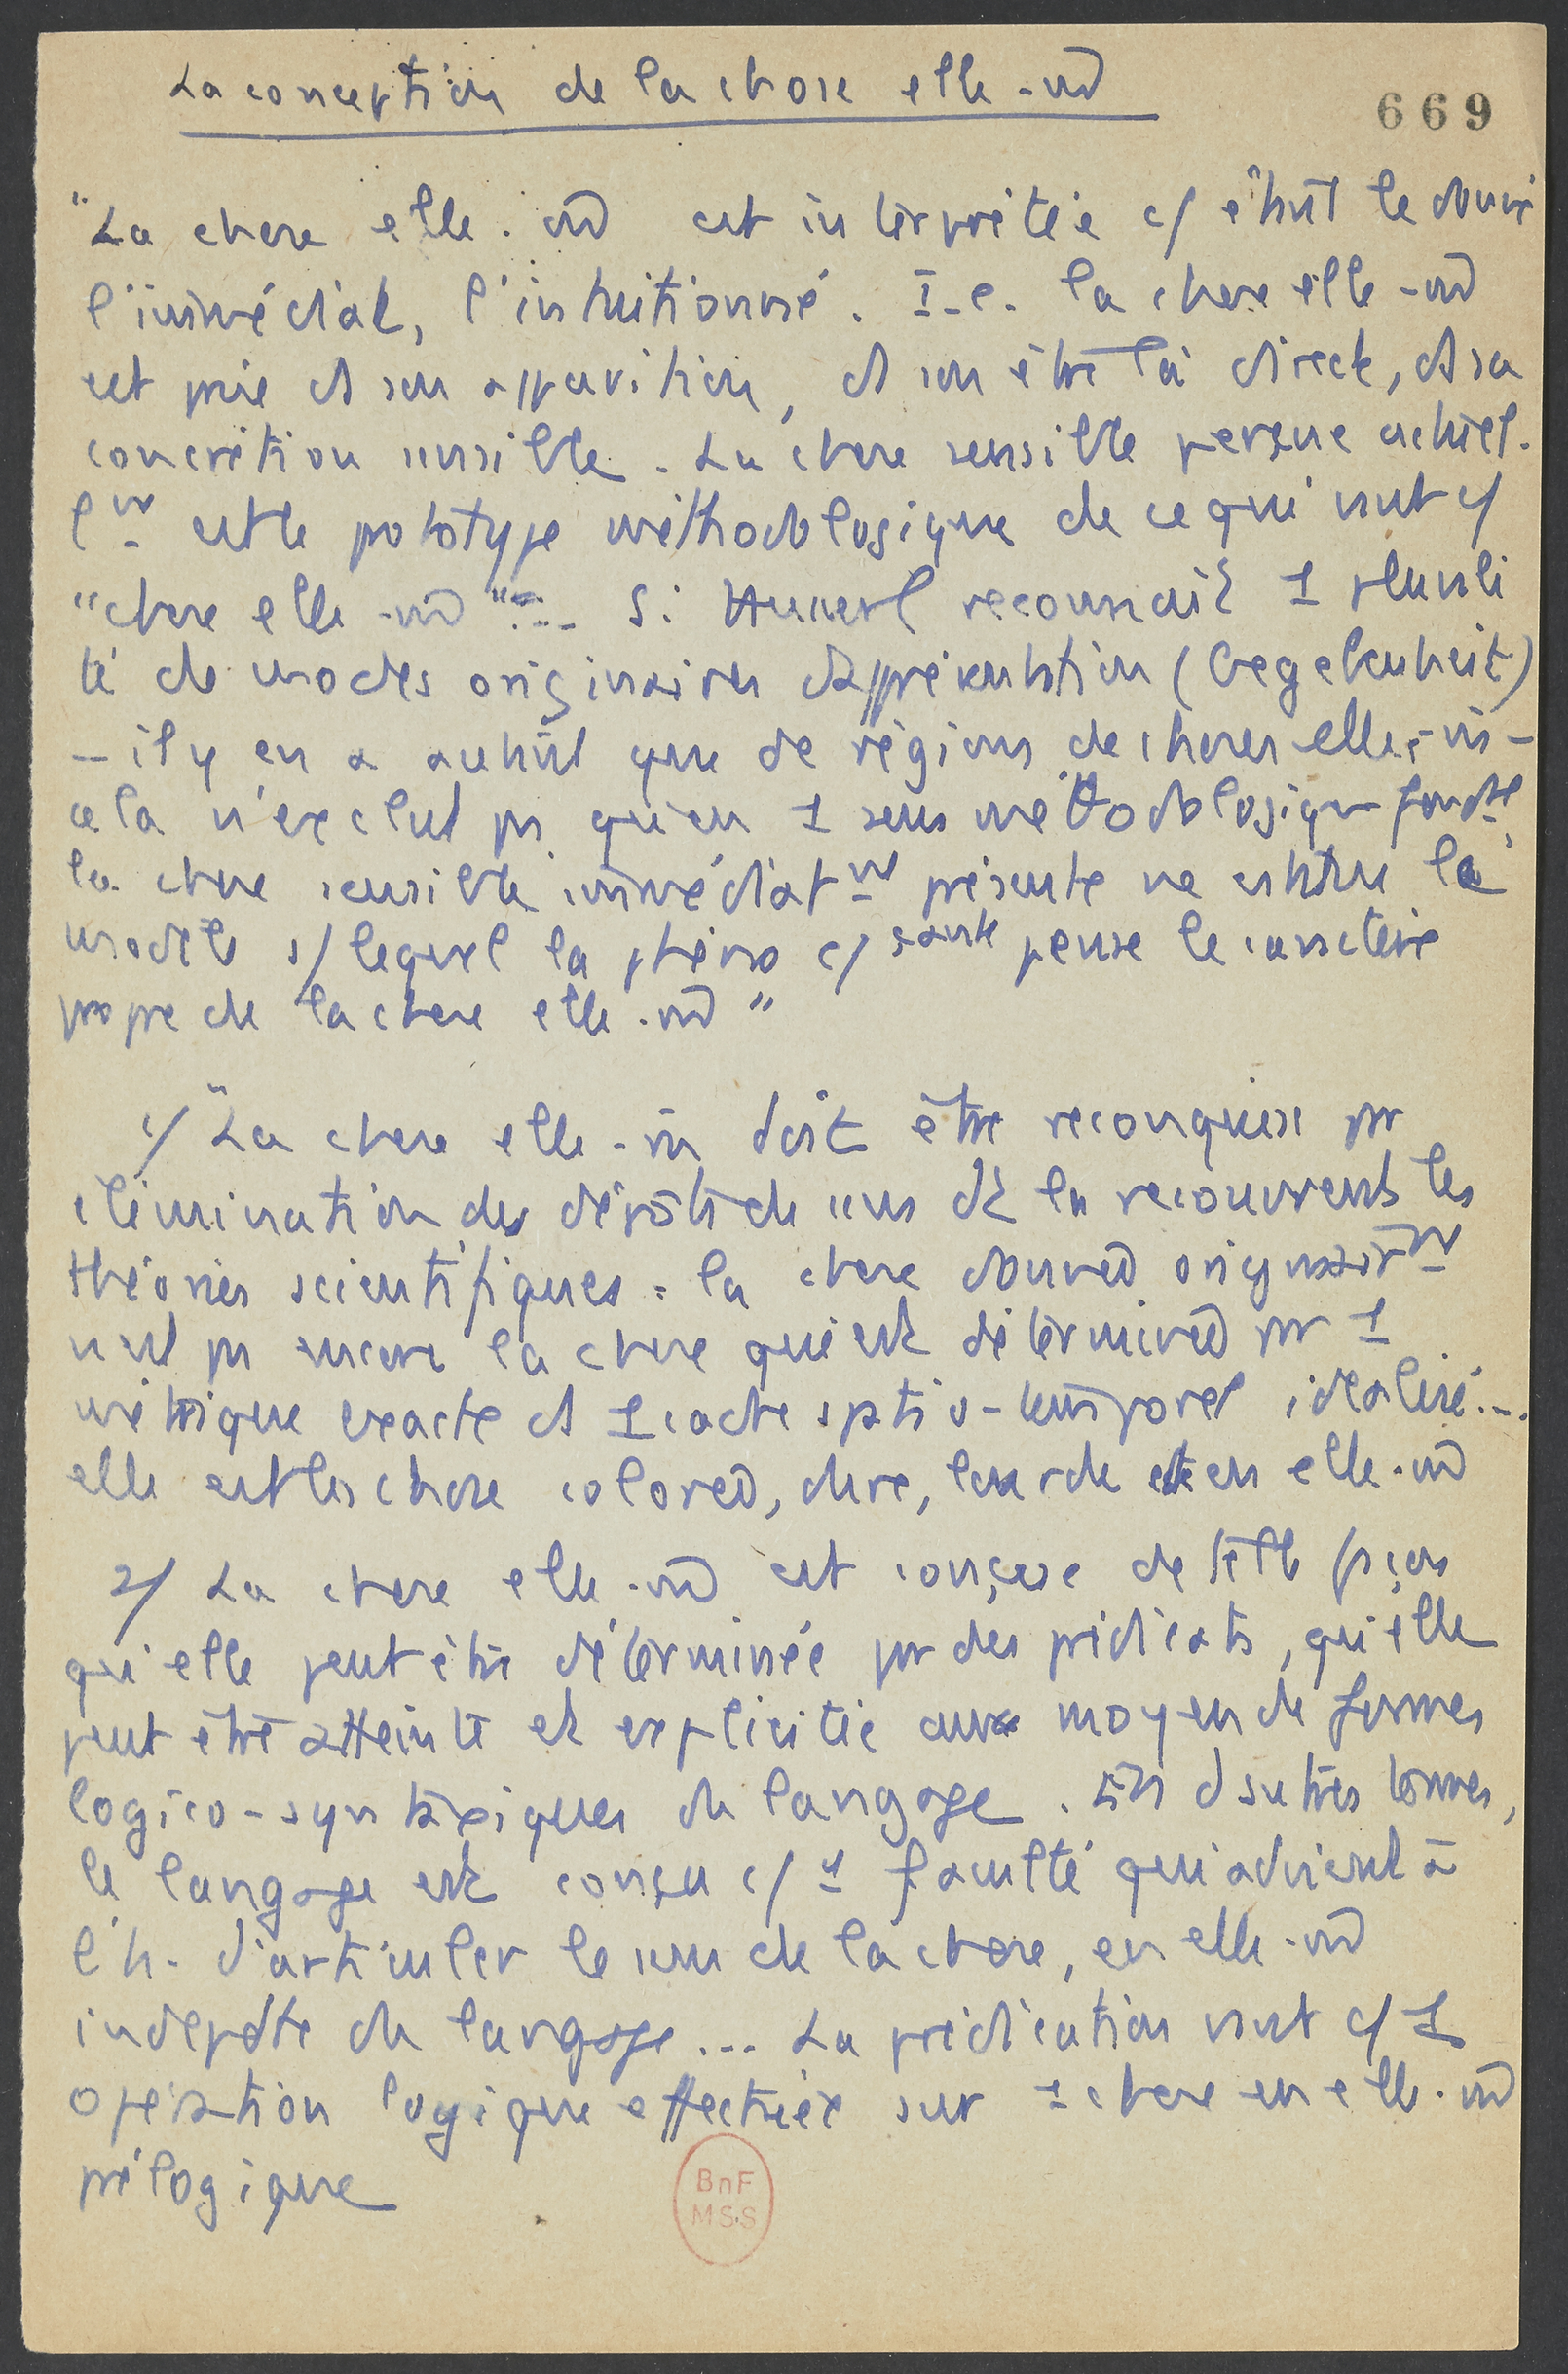 La conception de la chose elle-m̂
669
"La chose elle-m̂ est interprétée c/ étant le donné
l'immédiat, l'intuitionné. I-e. la chose elle-m̂
est prise ds son apparition, ds son être là direct, ds sa
concrétion sensible. La chose sensible perçue actuel-
lᵐᵗ est le prototype méthodologique de ce qui vaut c/
"chose elle-m̂"... Si Husserl reconnaît 1 plurali
té de modes originaires d'apprésentation (Gegebenheit)
- il y en a autant que de régions de choses elles-m̂ -
cela n'exclut ps qu'en 1 sens méthodologique fondtl,
la chose sensible immédiatᵐᵗ présente ne constitue le
modèle s/ lequel la phéno c/ pense le caractère
propre de la chose elle-m̂"
1/ "La chose elle-m̂ doit être reconquise pr
élimination des dépôts de sens dt la recouvrent les
théories scientifiques : la chose donnée originairᵐᵗ
n'est ps encore la chose qui est déterminée pr 1
métrique exacte ds 1 cadre spatio-temporel idéalisé...
elle est la chose colorée, dure, lourde et en elle-m̂
2/ La chose elle-m̂ est conçue de telle façon
qu'elle peut être déterminée pr des prédicats, qu'elle
peut être atteinte et explicitée au moyen de formes
logico-syntaxiques du langage. En d'autres termes,
le langage est conçu c/ 1 faculté qui advient à
l'h. d'articuler le sens de la chose, en elle-m̂
indépdte du langage... La prédication vaut c/ 1
opération logique effectuée sur 1 chose en elle-m̂
prélogique
BnF
MSS